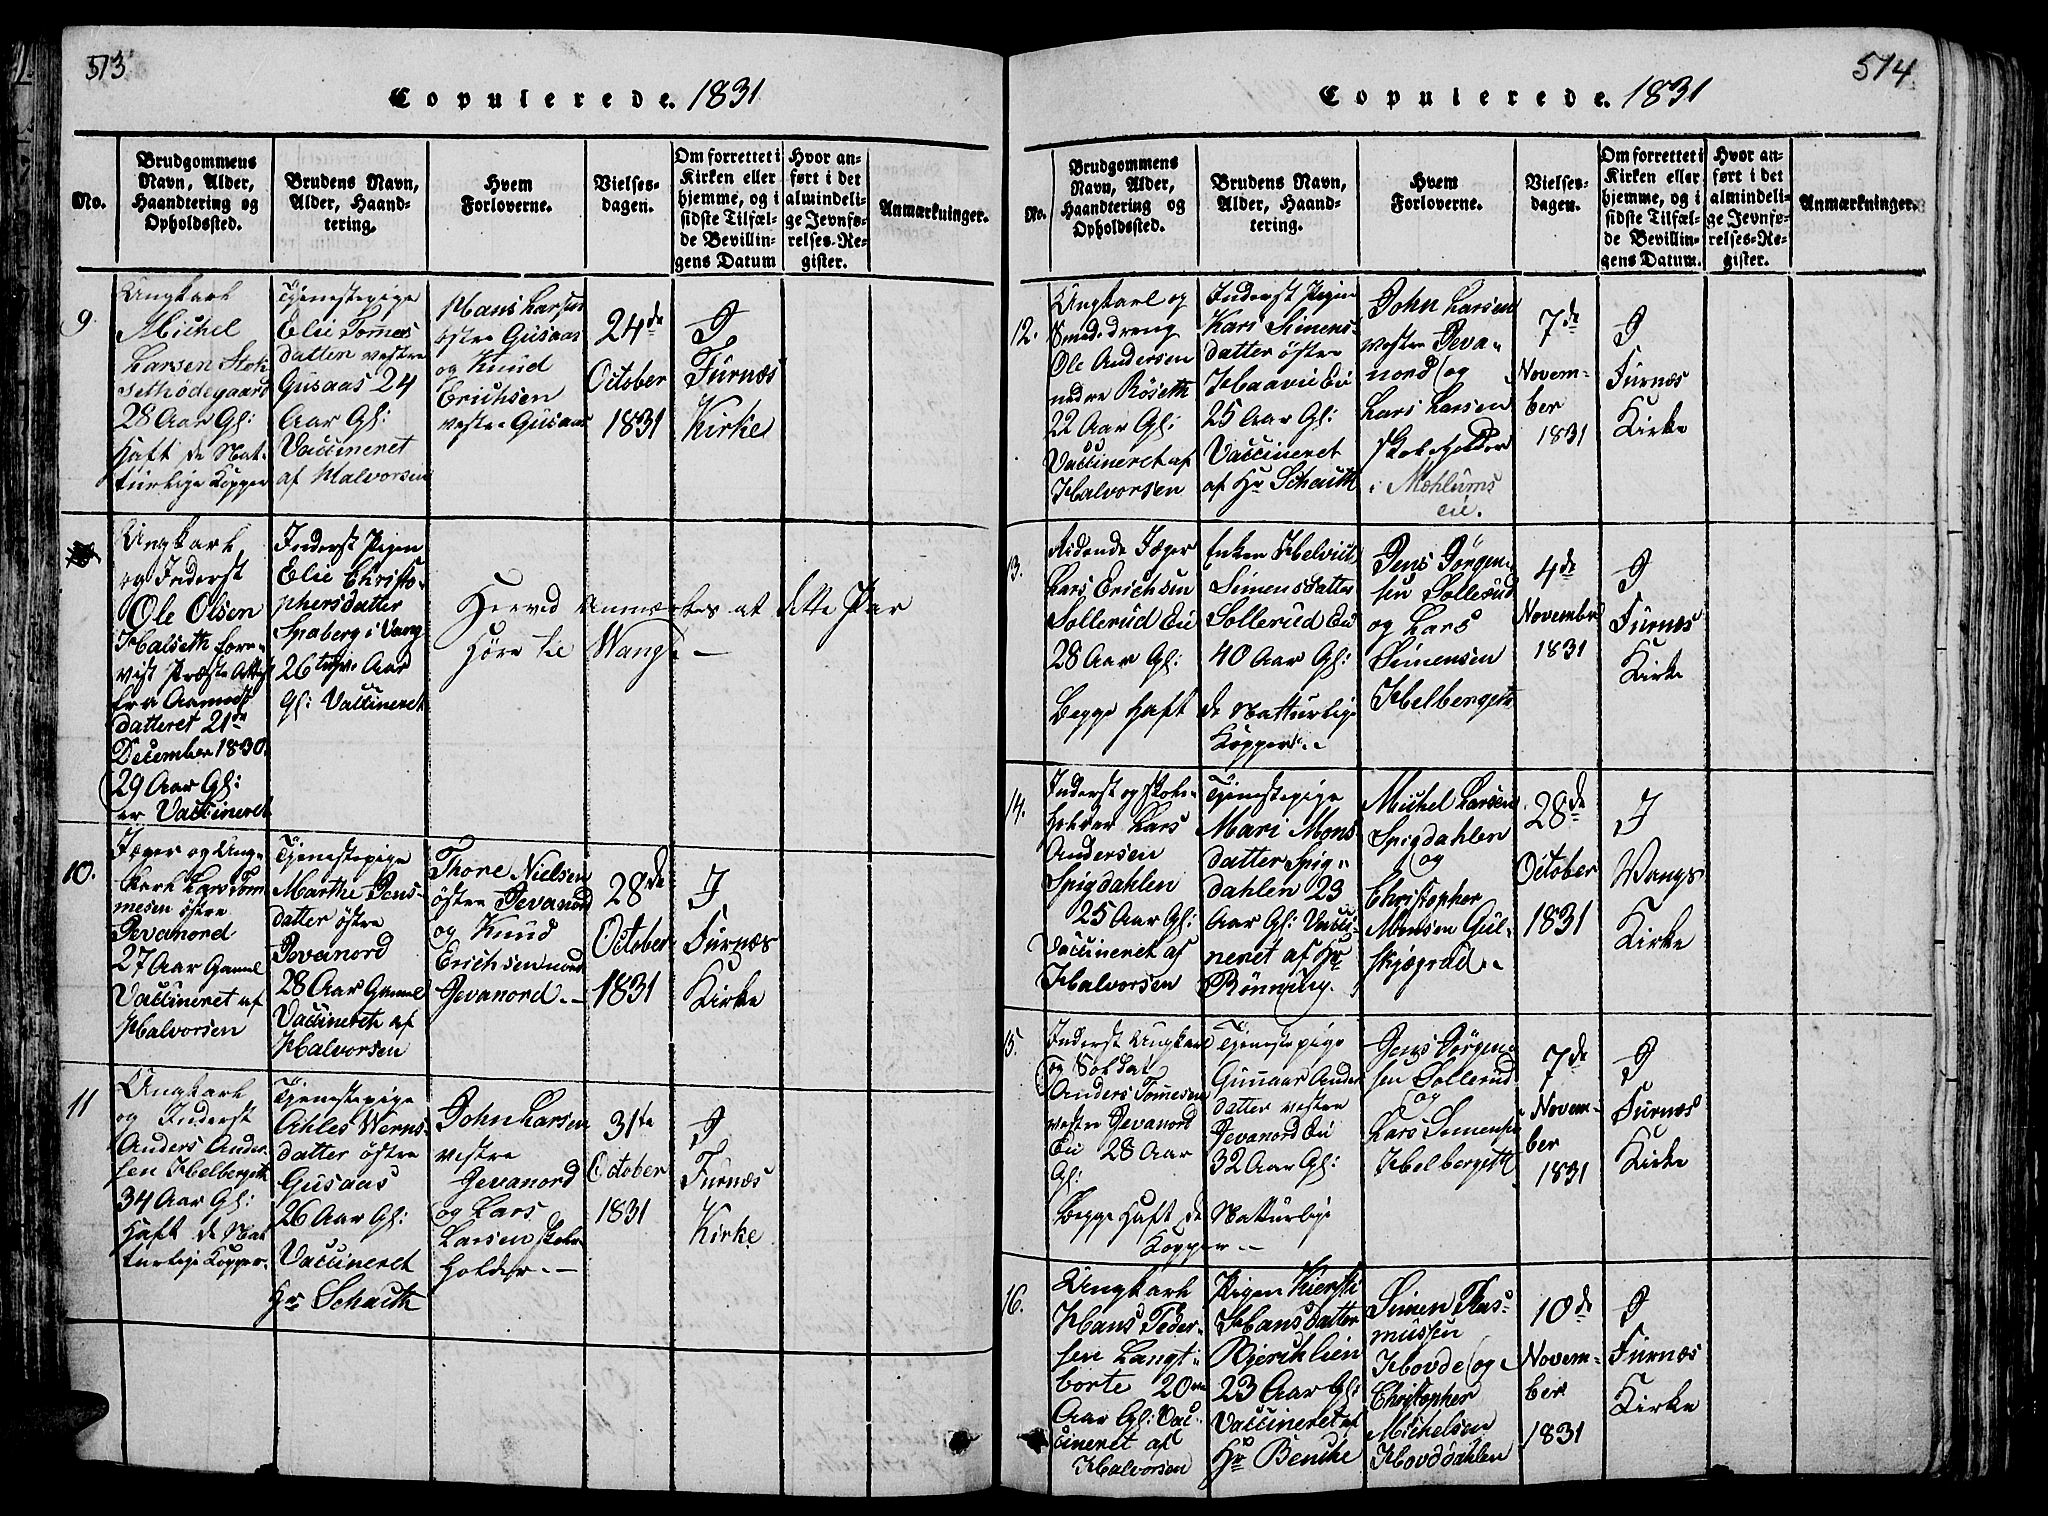 513
Copulerede. 1831
No.
Brudgommens
Navn, Alder,
Haandtering og
Opholdssted.
Brudens Navn,
Alder, Haand-
tering.
Hvem
Forloverne.
Vielses-
dagen.
Om forrettet i
Kirken eller
hjemme, og i
sidste Tilfæl-
de Bevillin-
gens Datum
Hvor an-
ført i det
almindeli-
ge Jevnfø-
relses-Re-
gister.
Anmærkninger.
9
Ungkarl
Michel
Larsen
28 Aar Gl:
haft de Nat-
turlige Kopper
Tjenestepige
Elie Tommes
datter vestre
Gusaas 24
Aar Gl:
Vaccineret
af Halvorsen
Hans Larsen
østre Gusaas
og Knud
Erichsen
vestre Gusaas
24de
October
1831
I
Furnæs
Kirke
Ungkarl
og Inderst
Ole Olsen
Halseth
fra
datteret 21de
December 1830
29 Aar Gl:
er Vaccineret
Inderst Pigen
Elie Christo-
phersdatter
Spaberg i Vang
26 Aar
Gl: Vaccineret
Herved Anmærkes at dette Par
hører til Wang. —
10.
Jæger og Ung-
karl Lars Tom-
mesen østre
Jevanord
27 Aar Gammel
Vaccineret af
Halvorsen
Tjenestepige
Marthe Jens-
datter østre
Jevanord
28 Aar Gammel
Vaccineret af
Halvorsen
Thore Nielsen
østre Jevanord
og Knud
Erichsen nord
Jevanord. –
28de
October
1831
I
Furnæs
Kirke
11
Ungkarl
og Inderst
Anders Ander-
sen Helbergeth
34 Aar Gl:
haft de Nat
turlige Kopper.
Tjenestepige
Ahles Werns-
datter østre
Gusaas
26 Aar Gl:
Vaccineret
Hr Schauth
John Larsen
vestre
Jevanord
og Lars
Larsen Skole
holder. —
31te
October
1831
I
Furnæs
Kirke
514
Copulerede. 1831
No.
Brudgommens
Navn, Alder,
Haandtering og
Opholdssted.
Brudens Navn,
Alder, Haand-
tering.
Hvem
Forloverne.
Vielses-
dagen.
Om forrettet i
Kirken eller
hjemme, og i
sidste Tilfæl-
de Bevillin-
gens Datum.
Hvor an-
ført i det
almindeli-
ge Jevnfø-
relses-Re-
gister.
Anmærkninger.
12.
Ungkarl og
Smed.dreng
Ole Andersen
nedre Røseth
22 Aar Gl:
Vaccineret af
Halvorsen
Inderst Pigen
Kari Simens-
datter østre
Haavie Eie
25 Aar Gl:
Vaccineret
af Hr Schauth
John Larsen
vestre Jeva-
nord og
Lars Larsen
Skoleholder
i Mæhlums
eie.
7de
Novem-
ber
1831
I
Furnæs
Kirke
13.
Ridende Jæger
Lars Erichsen
Sollerud Eie
28 Aar Gl:
Begge haft
Enken Helvict
Simensdatter
Sollerud Eie
40 Aar Gl:
de Natturlige
Kopper. –
Jens Jörgen-
sen Sollerud
og Lars
Simensen
Helbergeth
4de
November
1831
I
Furnæs
Kirke
14.
Inderst og Skole-
holder Lars
Andersen
Spigdahlen
25 Aar Gl:
Vaccineret af
Halvorsen
Tjenestepige
Mari Mons
datter Spig-
dahlen 23
Aar Gl: Vacci-
neret af Hr
Rönning.
Michel Larsen
Spigdahlen
og
Christopher
Monsen Gul-
skjøgrad. –
28de
October
1831
I
Wangs
Kirke
15.
Inderst Ungkarl
og Soldat
Anders Tomesen
vestre Jevanord
Eie 28 Aar
Gl:
Begge haft de
Kopper. –
Tjenestepige
Gunnaar Anders
datter vestre
Jevanord Eie
32 Aar Gl:
Natturlige
Jens Jörgen-
sen Sollerud
og
Lars Simensen
Helbergeth
7de
Novem-
ber
1831
I
Furnæs
Kirke
16.
Ungkarl
Hans Peder-
sen Langt-
borte 20
Aar Gl: Vac-
cineret af
Halvorsen
Pigen Kiersti
Hansdatter
Bjerchlien
23 Aar Gl:
Vaccineret af
Hr Benche
Simen Ras-
mussen
Hovde og
Christopher
Michelsen
Hovddahlen
10de
Novem-
ber
1831
I
Furnæs
Kirke